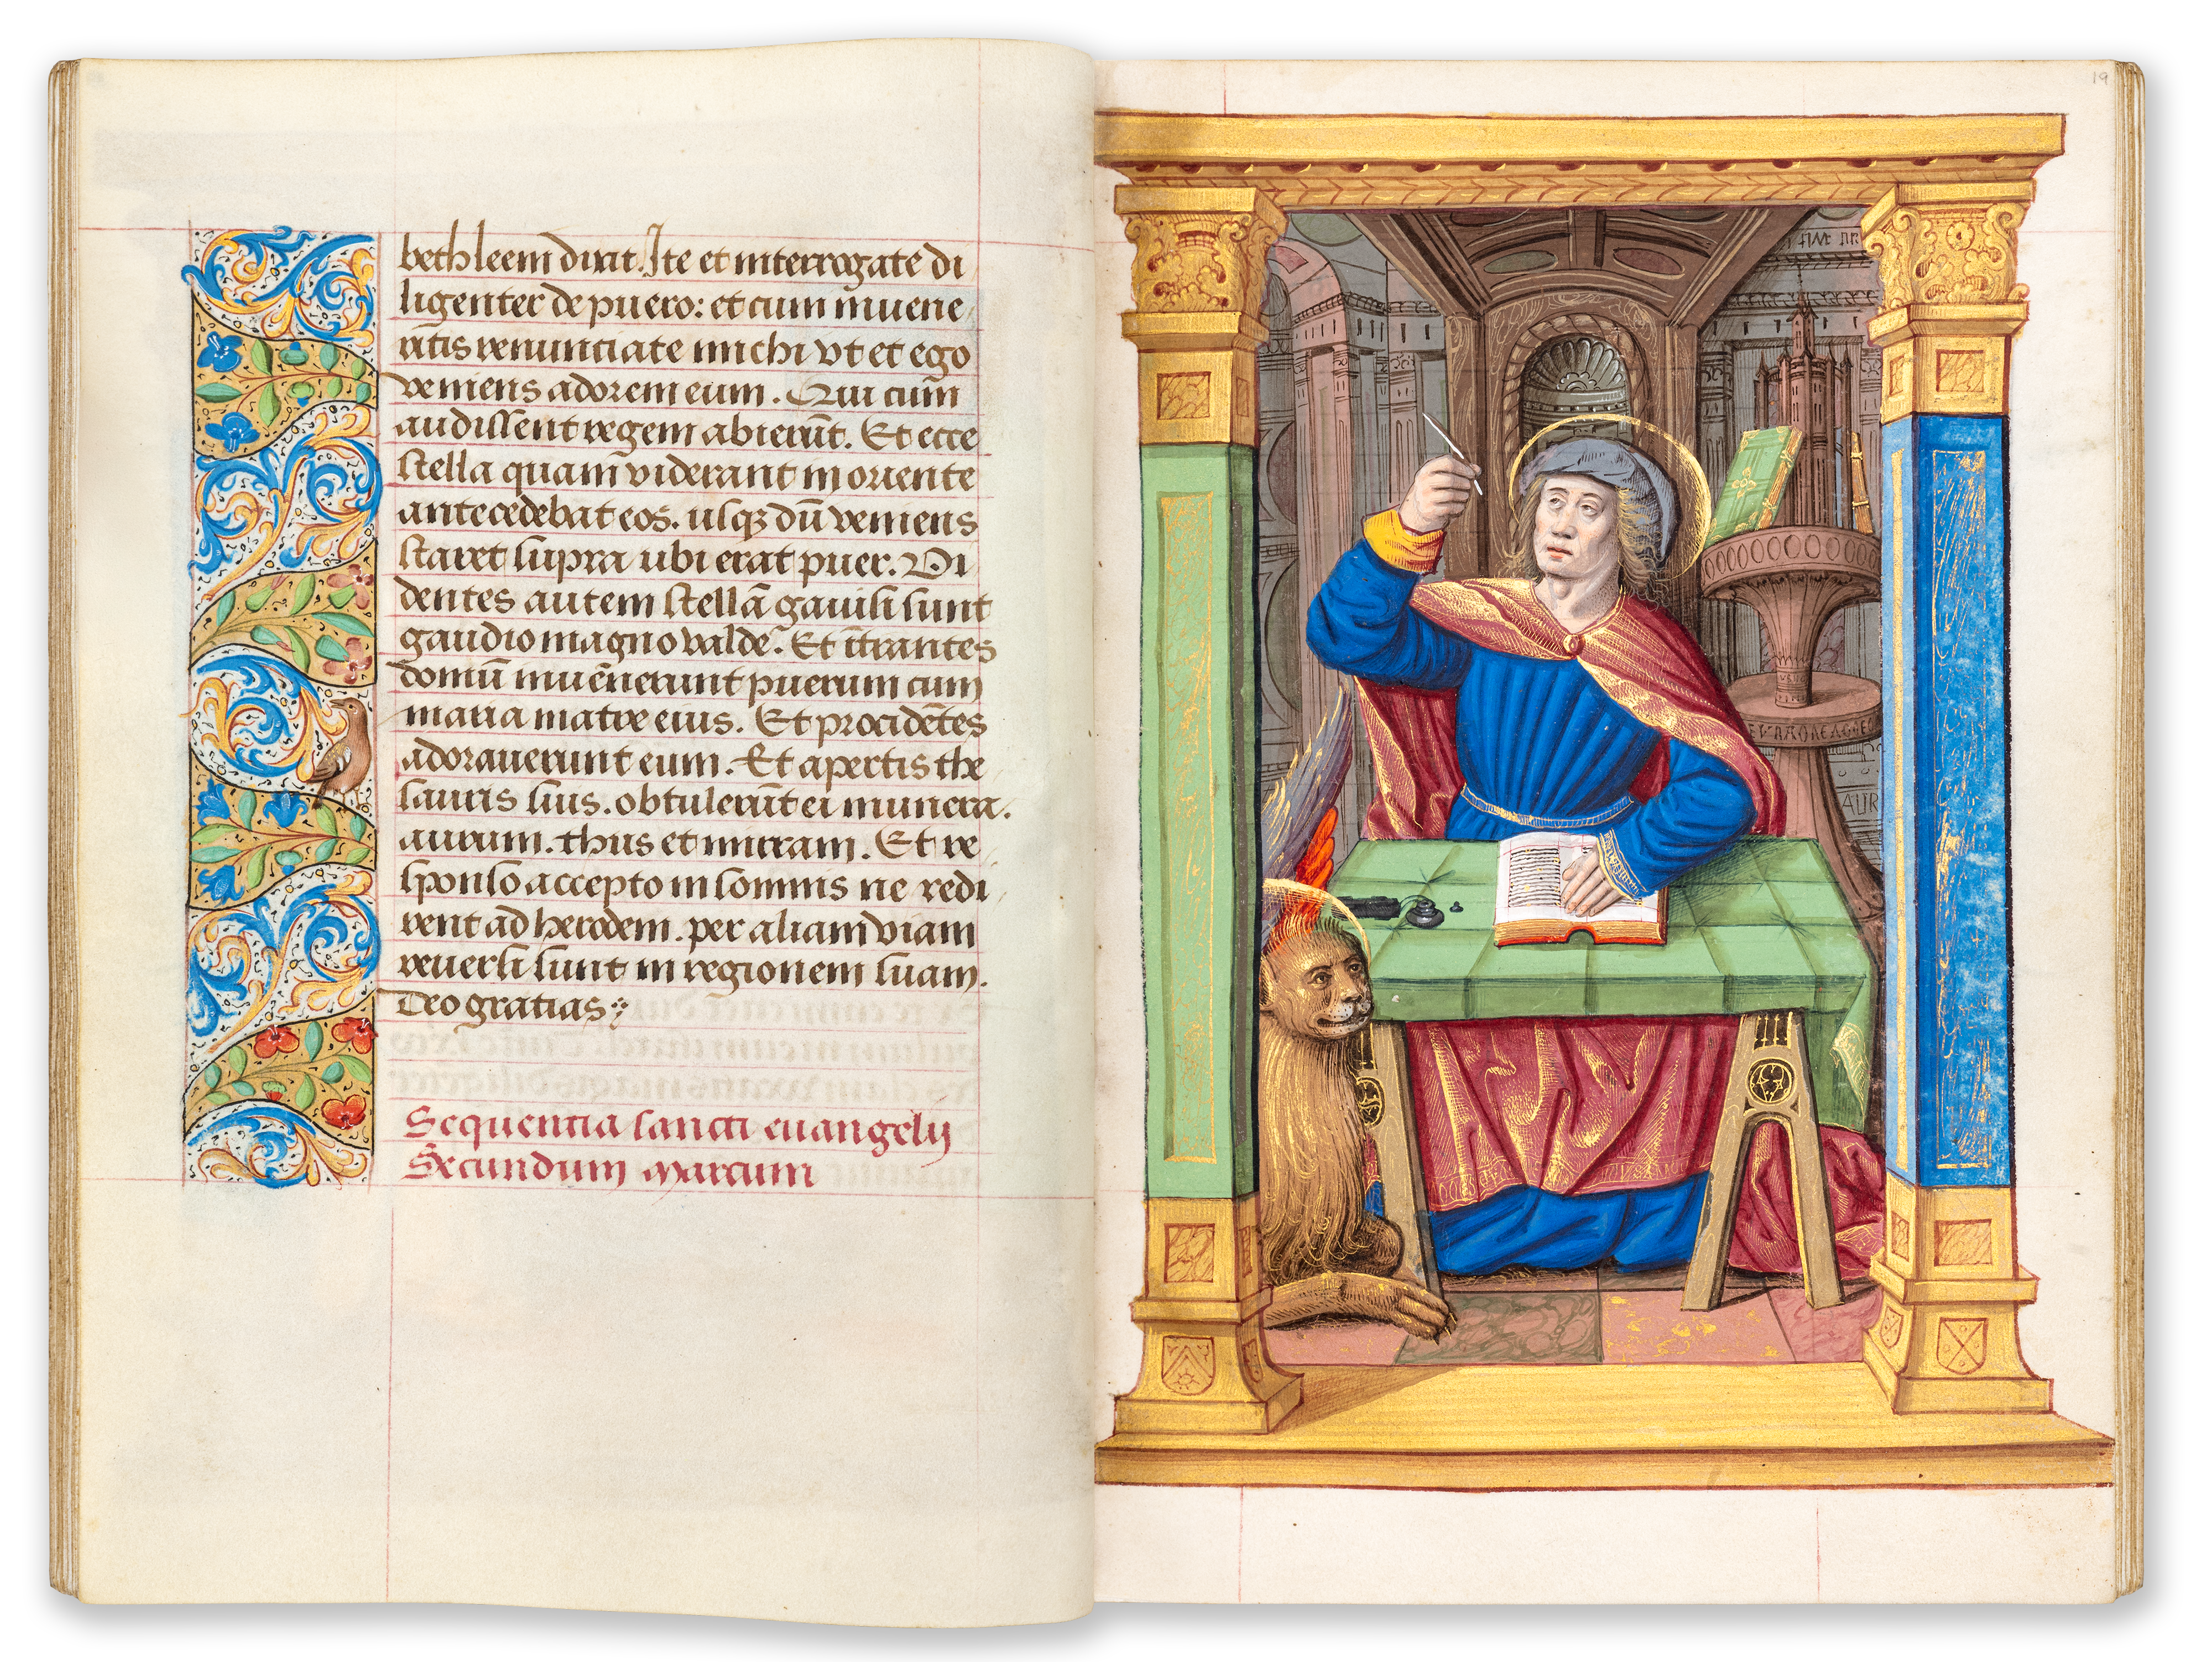 bethleem dixit. Ite et interrogate di
ligenter de puero: et cum inuene
ritis renunciate michi vt et ego
veniens adorem eum. Qui cum
audissent regem abierūt. Et ecce
stella quam viderant in oriente
antecedebat eos. usqꝫ dū veniens
staret supra ubi erat puer. Vi
dentes autem stellā gauisi sunt
gaudio magno valde. Et ītrantes
domū inuēnerunt puerum cum
maria matre eius. Et procidētes
adorauerunt eum. Et apertis the
sauris suis. obtulerūt ei munera.
aurum. thus et mirram. Et re
sponso accepto in somnis ne redi
rent ad herodem. per aliam viam
reuersi sunt in regionem suam.
Deo gratias
Sequentia sancti euangelij
Secundum marcum
19